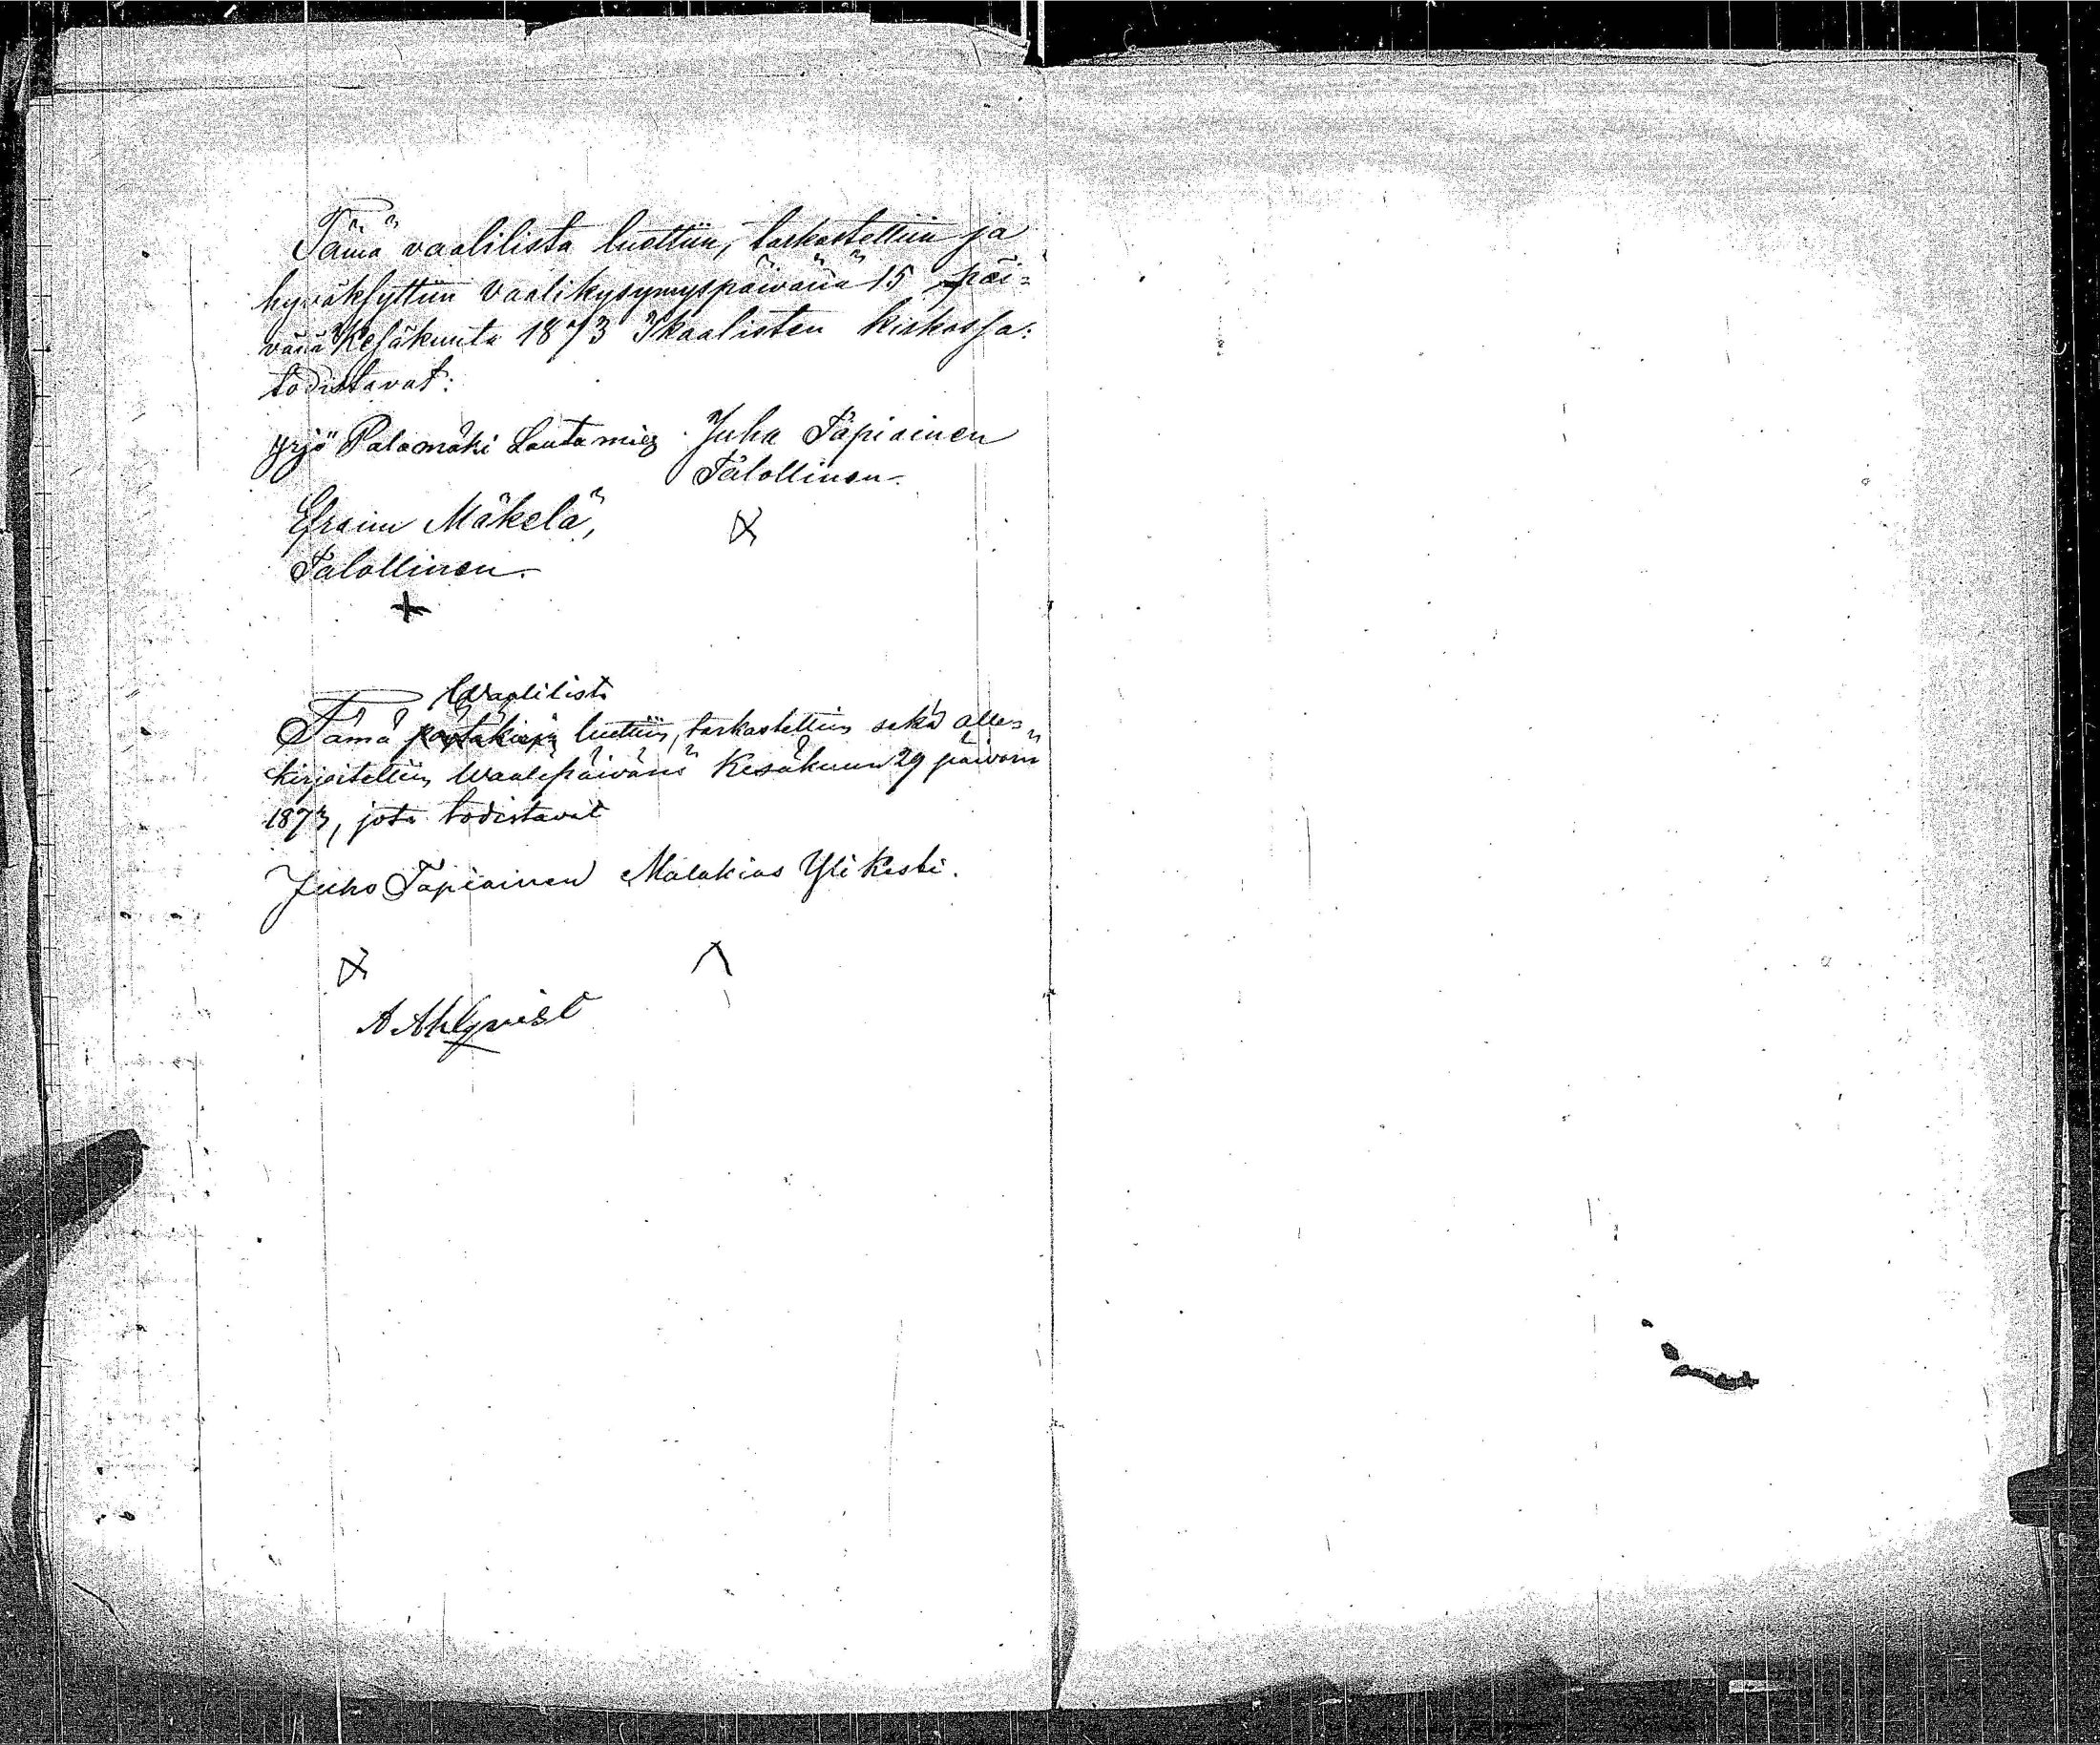 Tämä vaalilista luettiin, tarkastettiin ja
hyväksyttiin vaalikysymyspäivänä 15 päi=
vänä Kesäkuuta 1873 Ikaalisten kirkossa:
todistavat:
Yrjö Palomäki Lautamies. Juha Tapiainen
Talollinen.
Efraim Mäkelä,
Talollinen.
Waalilista
Tämä pöytäkirja luettiin, tarkastettiin sekä alle=
kirjoitettiin Waalipäivänä Kesäkuun 29 päivänä
1873, jota todistavat
Juho Tapiainen Malakias Yli Kesti.
A Ahlqvist